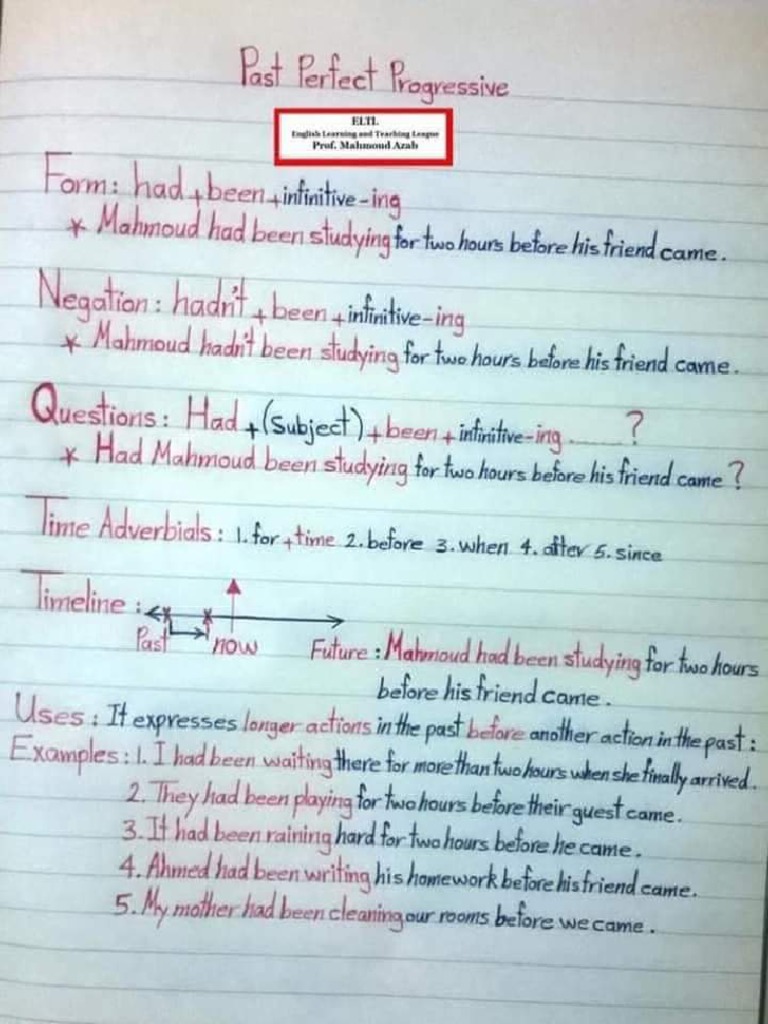 Past Perfect Progressive
ELTL
English Learning and Teaching League
Prof. Mahmoud Azab
Form: had + been + infinitive-ing
* Mahmoud had been studying for two hours before his friend came.
Negation: hadn't + been + infinitive-ing
* Mahmoud hadn't been studying for two hours before his friend came.
Questions: Had + (subject) + been + infinitive-ing ........ ?
* Had Mahmoud been studying for two hours before his friend came?
Time Adverbials: 1. for + time 2. before 3. when 4. after 5. since
Timeline:
Past now Future: Mahmoud had been studying for two hours
before his friend came.
Uses: It expresses longer actions in the past before another action in the past:
Examples: 1. I had been waiting there for more than two hours when she finally arrived.
2. They had been playing for two hours before their guest came.
3. It had been raining hard for two hours before he came.
4. Ahmed had been writing his homework before his friend came.
5. My mother had been cleaning our rooms before we came.